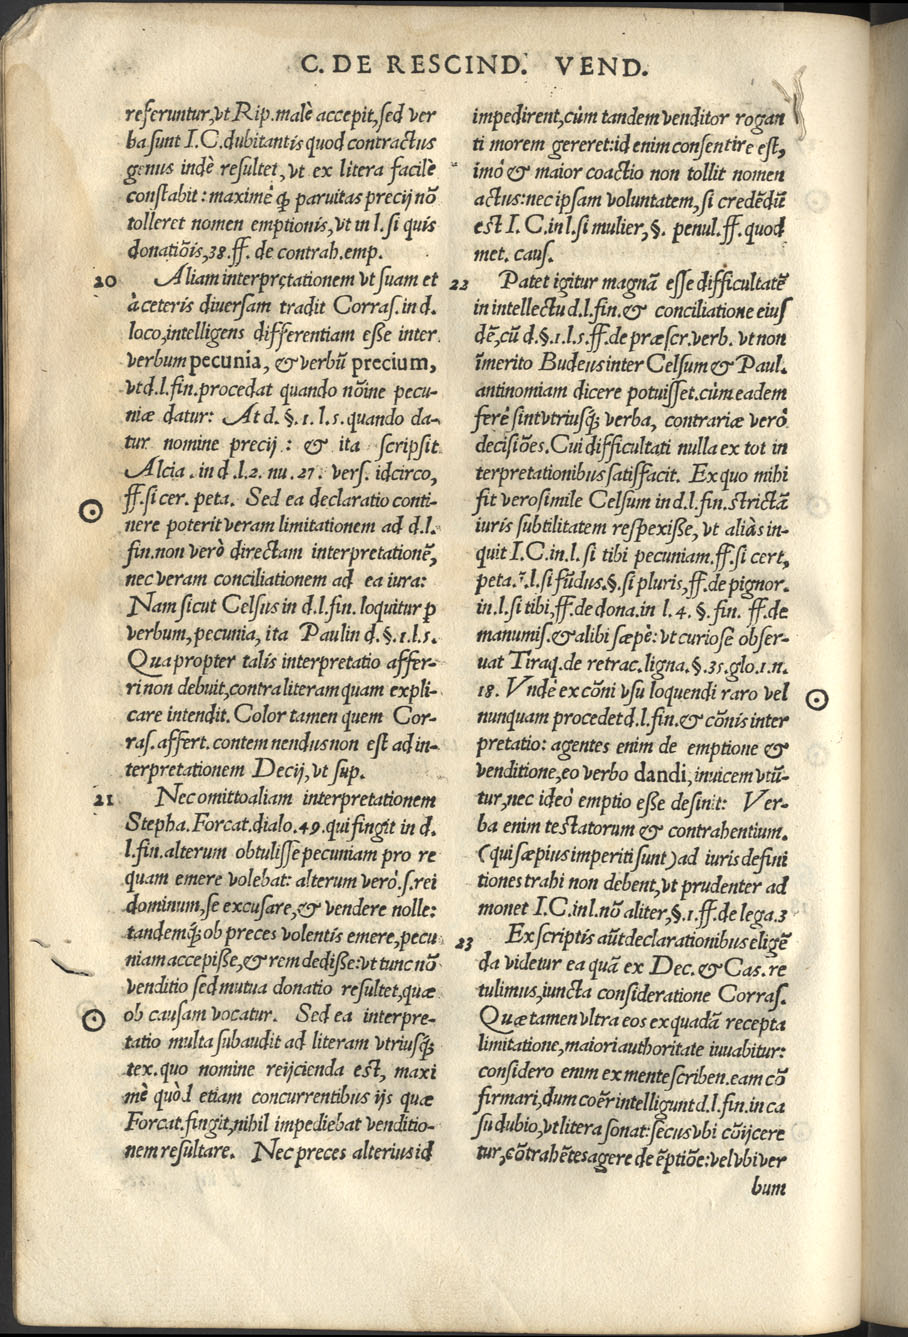 C. DE RESCIND. VEND.
referuntur,vt Rip.malè accepit,sed ver
ba sunt I.C.dubitantis quod contractus
genus indè resultet, vt ex litera facilè
constabit : maximè q̃ paruitas precij nõ
tolleret nomen emptionis, vt in l. si quis
donatiõis,38.ff. de contrah.emp.
20 Aliam interpretationem vt suam et
à ceteris diuersam tradit Corras.in d.
loco,intelligens differentiam esse inter
verbum pecunia, & verbũ precium,
vt d.l.fin.procedat quando nõine pecu-
niæ datur: At d. §.1. l.5. quando da-
tur nomine precij : & ita scripsit
Alcia. in d.l.2. nu. 27. vers. idcirco,
ff.si cer. peta. Sed ea declaratio conti-
nere poterit veram limitationem ad d.l.
fin.non verò directam interpretationẽ,
nec veram conciliationem ad ea iura:
Nam sicut Celsus in d.l.fin. loquitur ꝑ
verbum, pecunia, ita Paul in d.§.1.l.5.
Quapropter talis interpretatio affer-
ri non debuit,contra literam quam expli-
care intendit. Color tamen quem Cor-
ras.affert.contemnendus non est ad in-
terpretationem Decij, vt sup.
21 Nec omitto aliam interpretationem
Stepha.Forcat.dialo.49.qui fingit in d.
l.fin.alterum obtulisse pecuniam pro re
quam emere volebat: alterum verò.s.rei
dominum,se excusare,& vendere nolle:
tandemq́; ob preces volentis emere,pecu
niam accepisse,& rem dedisse:vt tunc nõ
venditio sed mutua donatio resultet,quæ
ob causam vocatur. Sed ea interpre-
tatio multa subaudit ad literam vtriusq́;
tex.quo nomine reijcienda est, maxi
mè quòd etiam concurrentibus ijs quæ
Forcat.fingit,nihil impediebat venditio-
nem resultare. Nec preces alterius id
impedirent,cùm tandem venditor rogan
ti morem gereret:id enim consentire est,
imò & maior coactio non tollit nomen
actus:nec ipsam voluntatem,si credẽdũ
est I.C.in l.si mulier,§. penul.ff.quod
met. caus.
22 Patet igitur magnã esse difficultatẽ
in intellectu d.l.fin.& conciliatione eius
dẽ,cũ d.§.1.l.5.ff.de præscr.verb. vt non
ĩmerito Budeus inter Celsum & Paul.
antinomiam dicere potuisset.cùm eadem
ferè sint vtriusq́; verba, contrariæ verò
decisiões.Cui difficultati nulla ex tot in
terpretationibus satisfacit. Ex quo mihi
fit verosimile Celsum in d.l.fin.strictã
iuris subtilitatem respexisse, vt aliàs in-
quit I.C.in.l. si tibi pecuniam.ff.si cert,
peta.⁊.l.si fũdus.§.si pluris,ff.de pignor.
in.l.si tibi,ff.de dona.in l. 4. §. fin. ff.de
manumis.& alibi sæpè: vt curiosè obser-
uat Tiraq.de retrac.ligna.§.35.glo.1.n.
18. Vndè ex cõni vsu loquendi raro vel
nunquam procedet d.l.fin.& cõnis inter
pretatio: agentes enim de emptione &
venditione,eo verbo dandi,inuicem vtũ-
tur,nec ideò emptio esse desinit: Ver-
ba enim testatorum & contrahentium.
(qui sæpius imperiti sunt) ad iuris defini
tiones trahi non debent,vt prudenter ad
monet I.C.in l.nõ aliter,§.1.ff.de lega.3
23 Ex scriptis aũt declarationibus eligẽ
da videtur ea quã ex Dec.& Cas. re
tulimus,iuncta consideratione Corras.
Quæ tamen vltra eos ex quadã recepta
limitatione,maiori authoritate iuuabitur:
considero enim ex mente scriben.eam cõ
firmari,dum coẽr intelligunt d.l.fin.in ca
su dubio,vt litera sonat:secus vbi cõijcere
tur,cõtrahẽtes agere de ẽptiõe:vel vbi ver
bum